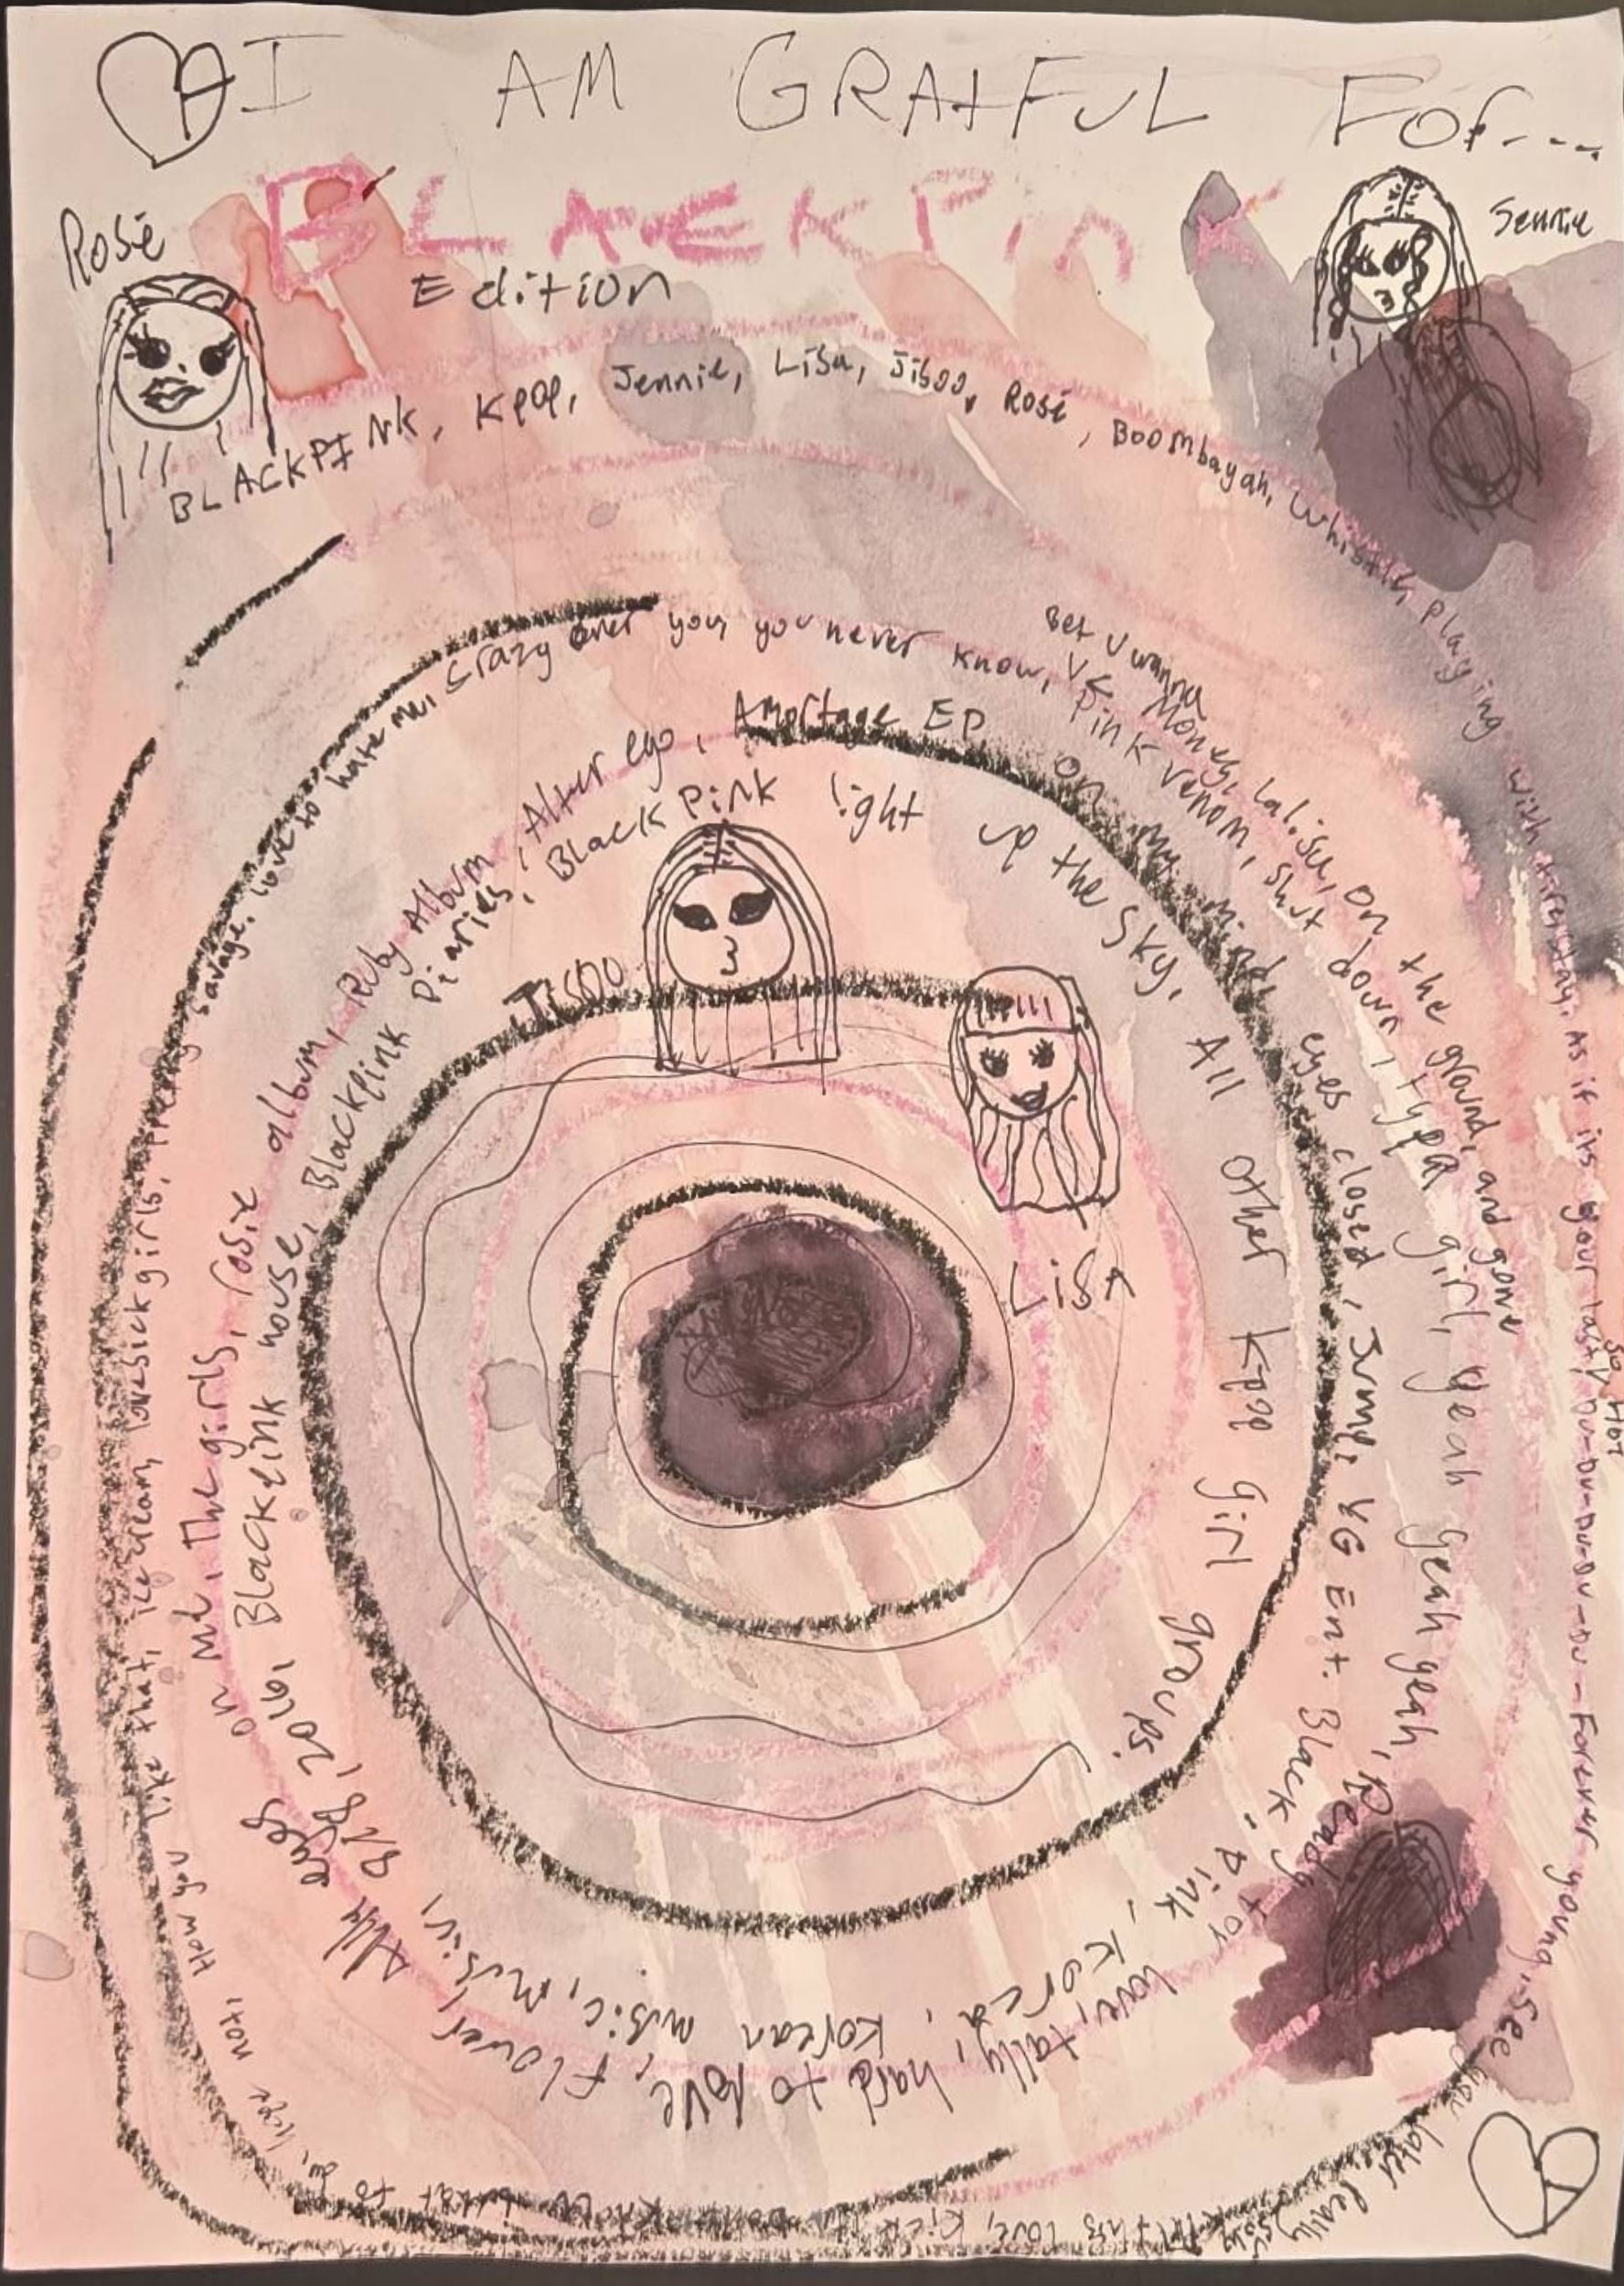 I AM GRATFUL FOr....
BLACKPinK
Edition
Rosé
Jennie
BLACKPINK, Kpop, Jennie, Lisa, Jisoo, Rosé, Boombayah, Whistle, playing with fire, stay, As if its your last, Du-Du-Du-Du-Du-Du - Forever young, See you later, Really
so Hot
Kill this love, Kick it, Dont know what to do,
Hope not, How you like that, ice cream, lovesick girls, Pretty savage, love to hate me, crazy over you, you never know,
Bet u wanna
Money, Lalisa, On the ground, and gone
Pink venom, Shut down, typa girl, yeah yeah yeah, Ready for love, tally, hard to love, Flower,
eyes on me, The girls, rosie album, Ruby Album, Alter ego, Amortage EP,
on my mind eyes closed, Jump, YG Ent. Black, Pink, Korea, Korean music, Music,
8/8, 2016, Blackpink house, Blackpink Diaries, Black Pink light up the Sky, All other kpop girl groups.
Jisoo
LiSA